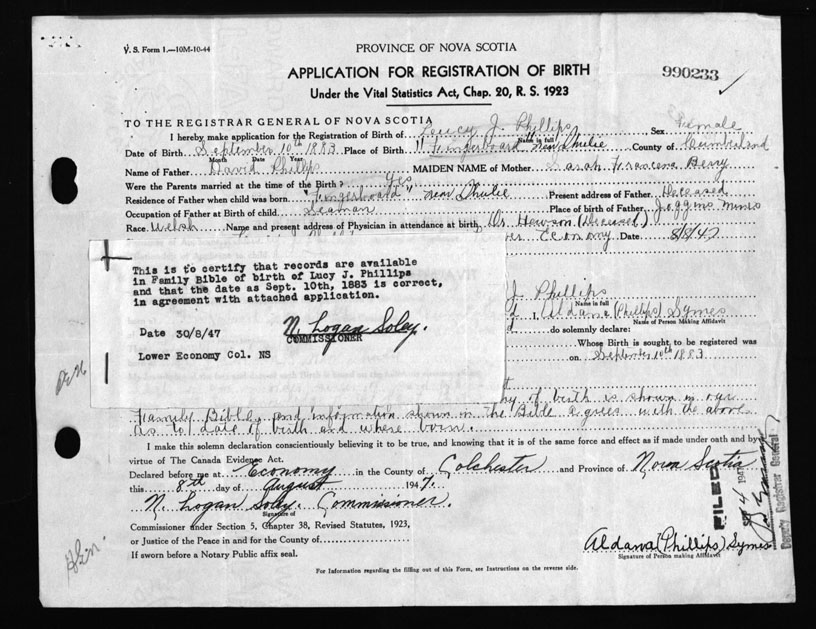 V. S. Form 1.—10M-10-44
PROVINCE OF NOVA SCOTIA
APPLICATION FOR REGISTRATION OF BIRTH
990233
Under the Vital Statistics Act, Chap. 20, R. S. 1923
TO THE REGISTRAR GENERAL OF NOVA SCOTIA
I hereby make application for the Registration of Birth of Loucy J. Phillips Sex Female
Name in full
Date of Birth September 10th 1883 Place of Birth "Fingerboard" near County of Cumberland
Month Date Year
Name of Father David Phillips MAIDEN NAME of Mother Sarah Berry
Were the Parents married at the time of the Birth? Yes
Residence of Father when child was born "Fingerboard" near Present address of Father Deceased
Occupation of Father at Birth of child Seaman Place of birth of Father Joggins mines
Race Welsh Name and present address of Physician in attendance at birth Dr Hewson (Deceased)
Economy Date 8/8/47
This is to certify that records are available
in Family Bible of birth of Lucy J. Phillips
and that the date as Sept. 10th, 1883 is correct,
in agreement with attached application.
Date 30/8/47 N. Logan Soley.
COMMISSIONER
Lower Economy Col. NS
J. Phillips
Name in full
I, Aldana (Phillips) Symes
Name of Person Making Affidavit
do solemnly declare:
Whose Birth is sought to be registered was
on September 10th 1883
of birth is shown in our
Family Bible, and information shown in the Bible agrees with the above
as to date of birth and where born.
I make this solemn declaration conscientiously believing it to be true, and knowing that it is of the same force and effect as if made under oath and by
virtue of The Canada Evidence Act.
Declared before me at Economy in the County of Colchester and Province of Nova Scotia
this 8th day of August 1947.
N. Logan Soley. Commissioner.
Signature of
Commissioner under Section 5, Chapter 38, Revised Statutes, 1923,
or Justice of the Peace in and for the County of
If sworn before a Notary Public affix seal.
Aldana (Phillips) Symes
Signature of Person making Affidavit
For Information regarding the filling out of this Form, see Instructions on the reverse side.
FILED
Deputy Registrar General